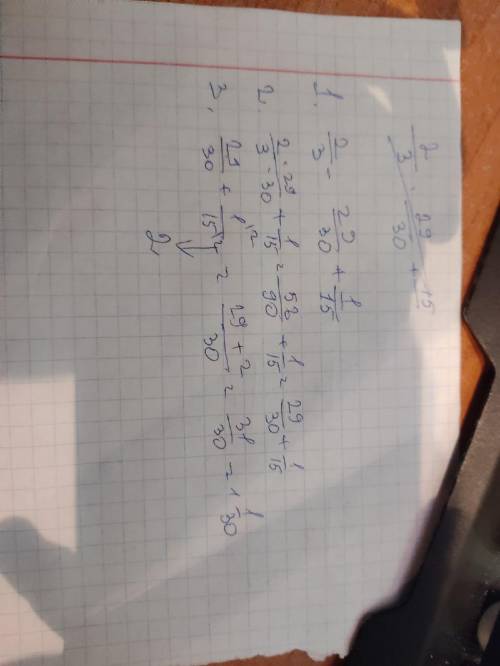 2/3 · 29/30 + 15
1. 2/3 · 29/30 + 1/15
2. 2·29/3·30 + 1/15 = 58/90 + 1/15 = 29/30 + 1/15
3. 29/30 + 1/15 = 29+2/30 = 31/30 = 1 1/30
2